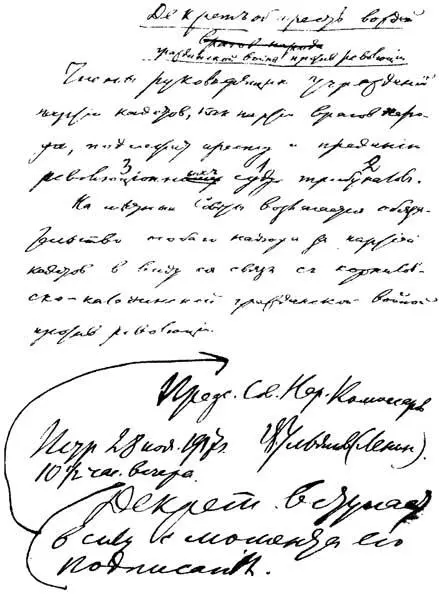 Декретъ об аресте вождей
врагов народа
гражданской войны против революции
Члены руководящих учреждений
партии кадетов, как партии врагов наро-
да, подлежат аресту и преданию
3 1 2
революционных суду трибуналов.
На местные Советы возлагается обяза-
тельство особого надзора за партией
кадетов в виду ея связи с корнилов-
ско-калединской гражданской войной
против революции.
Предс. Св. Нар. Комиссаров
Петр 28 ноя. 1917 г. Вл. Ульянов (Ленин).
10 1/2 час. вечера.
Декрет вступает
в силу с момента его
подписания.